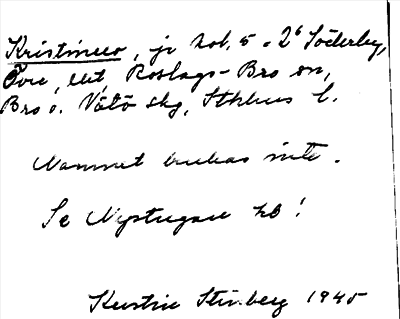 Kristinero, jr hol. 5 a 2⁶ Söderby,
Övre, utj, Roslags-Bro sn,
Bro o. Vätö skg, Sthlms l.
Namnet brukas inte.
Se Nystugan hb!
Kerstin Stenberg 1945